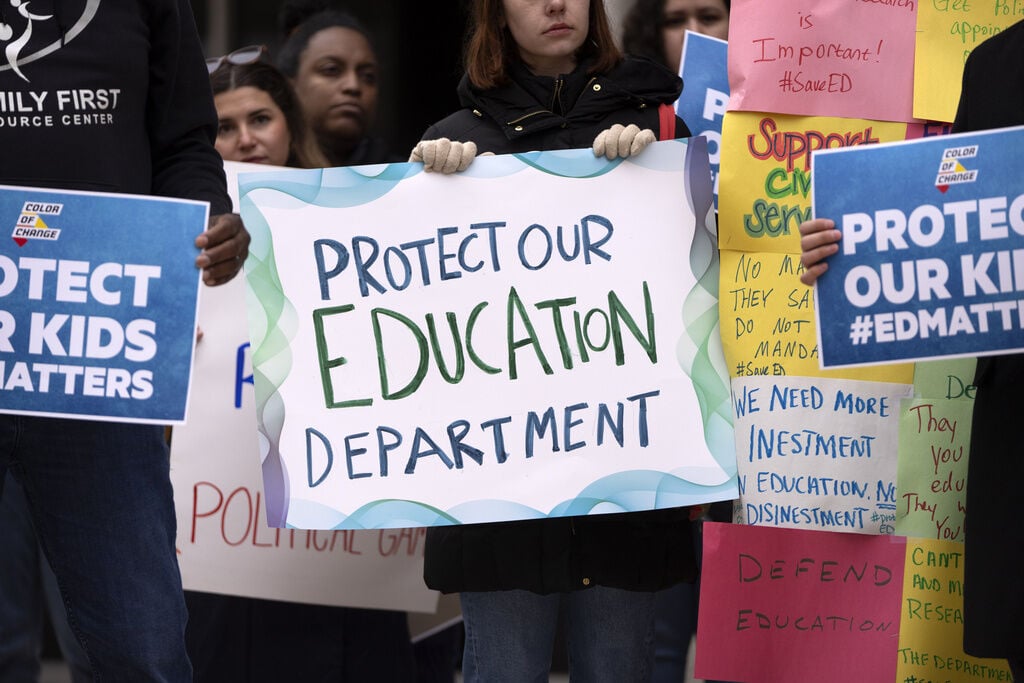 MILY FIRST
SOURCE CENTER
COLOR
OF
CHANGE
OTECT
R KIDS
MATTERS
PROTECT OUR
EDUCATION
DEPARTMENT
POLITICAL GAM
is
Important!
#SaveED
Support
Serv
NO MA
THEY SA
DO NOT
MANDA
#SaveED
WE NEED MORE
INESTMENT
N EDUCATION. NO
DISINESTMENT
DEFEND
EDUCATION
appoin
COLOR
OF
CHANGE
PROTEC
OUR KI
#EDMATT
De
They
you
edu
They w
You
CAN'T
AND M
RESEA
THE DEPARTMEN